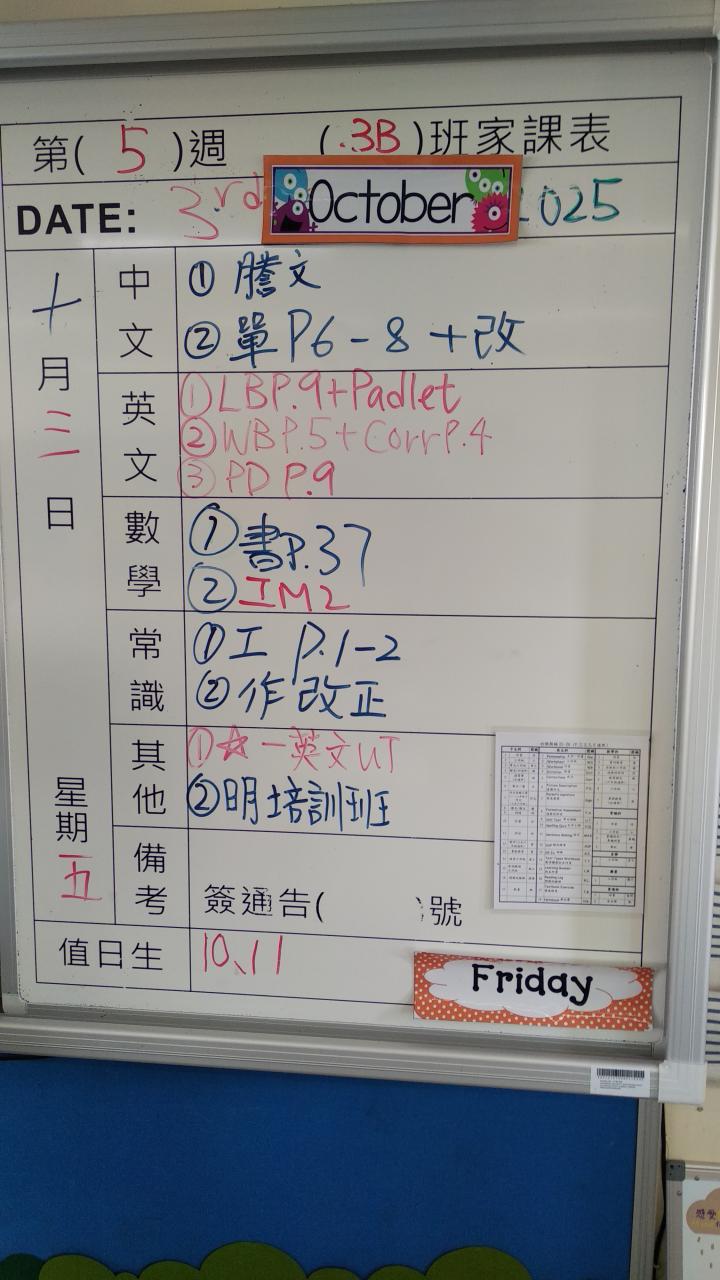 第( 5 )週 ( 3B )班家課表
DATE: 3rd October 2025
十月三日
星期五
中文
① 謄文
② 單P6-8+改
英文
① LBP.9+Padlet
② WBP.5+CorrP.4
③ PD P.9
數學
① 書P.37
② IM2
常識
① 工 P.1-2
② 作改正
其他
① ☆一英文UT
② 明培訓班
備考
簽通告( )號
值日生
10、11
Friday